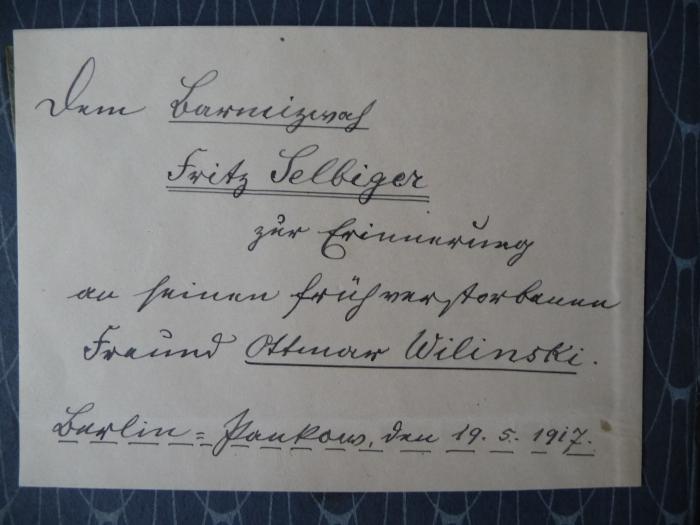 Dem Barmizwah
Fritz Selbiger
zur Erinnerung
an seinen frühverstorbenen
Freund Ottmar Wilinski.
Berlin=Pankow, den 19. 5. 1917.